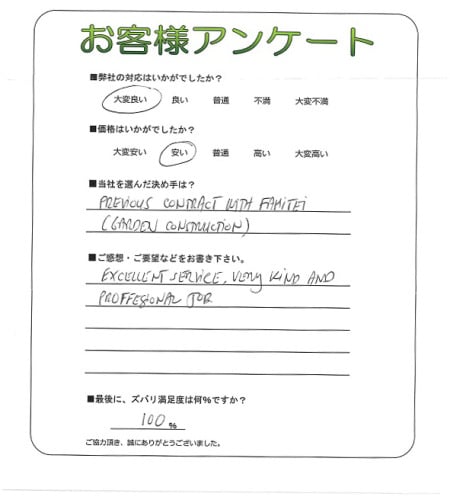 お客様アンケート
■弊社の対応はいかがでしたか？
大変良い 良い 普通 不満 大変不満
■価格はいかがでしたか？
大変安い 安い 普通 高い 大変高い
■当社を選んだ決め手は？
PREVIOUS CONTRACT WITH FAMITEI
(GARDEN CONSTRUCTION)
■ご感想・ご要望などをお書き下さい。
EXCELLENT SERVICE, VERY KIND AND
PROFFESIONAL JOB
■最後に、ズバリ満足度は何%ですか？
100 %
ご協力頂き、誠にありがとうございました。